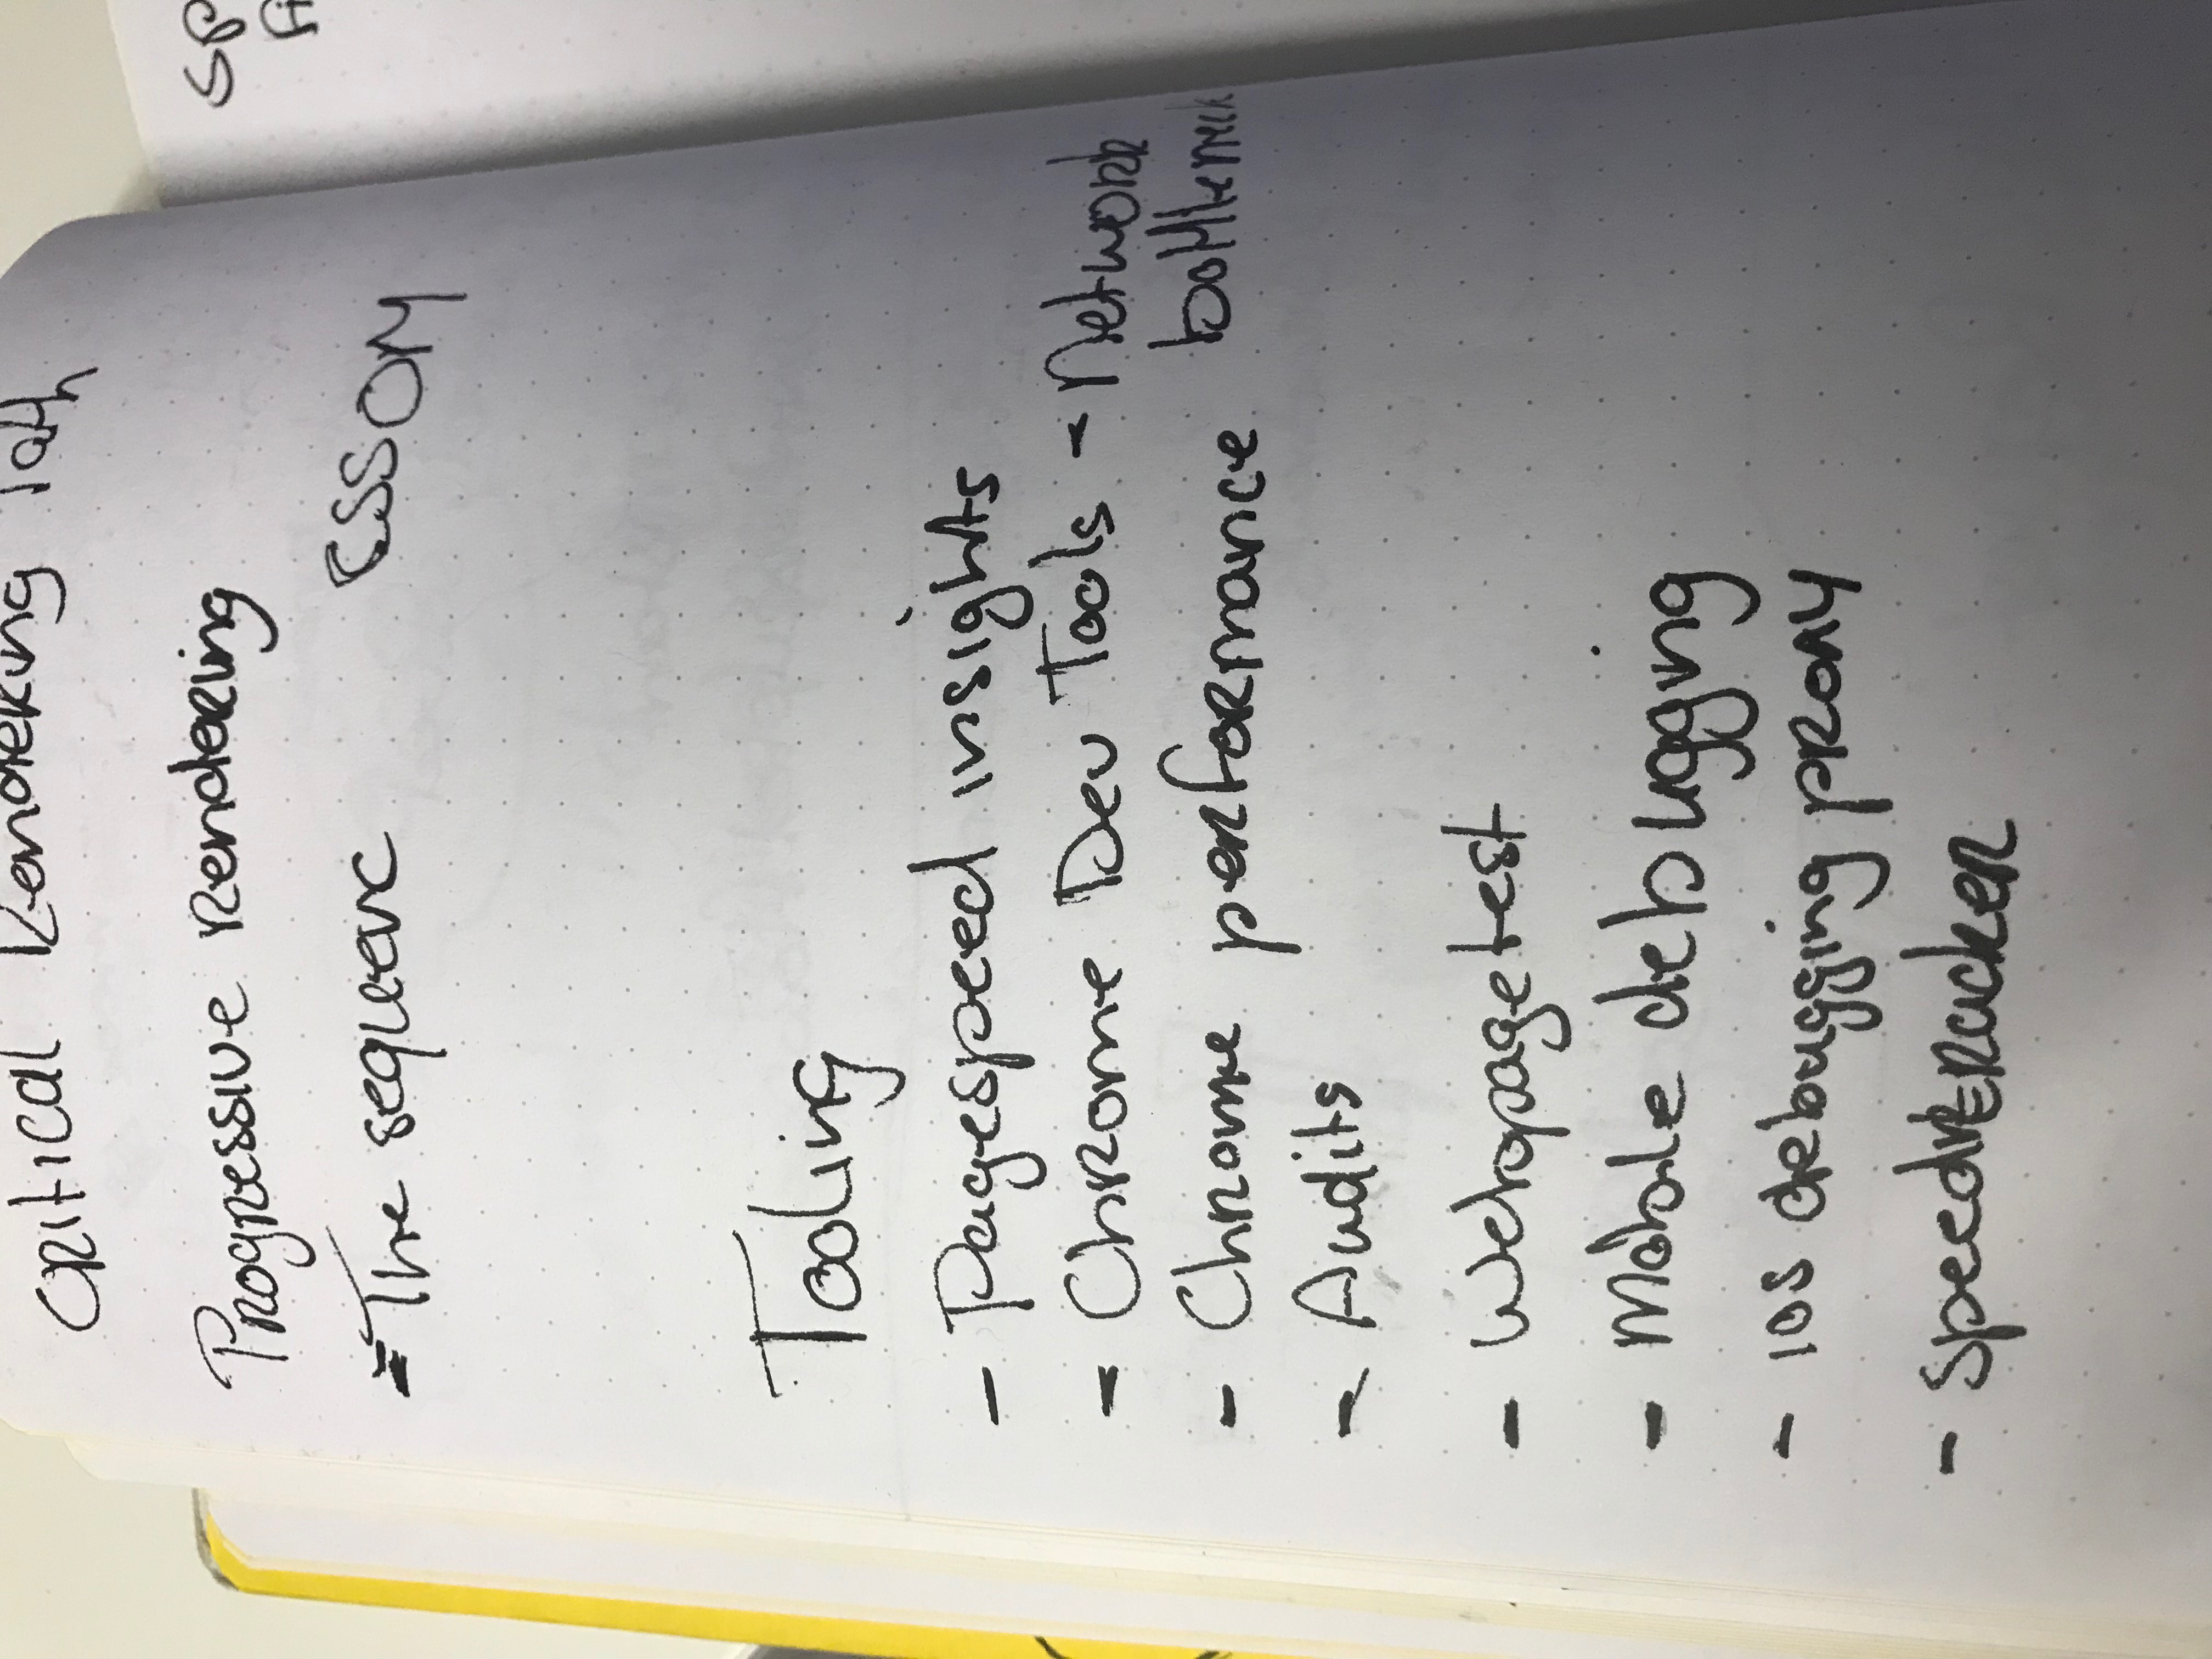 Critical Rendering Path
Progressive Rendering
= The sequenc CSSOM
Tooling
- Pagespeed insights
- Chrome Dev Tools - Network
bottleneck
- Chrome performance
- Audits
- Webpagetest
- Mobile debugging
- ios debugging proxy
- Speedtracker
Sp
Fi